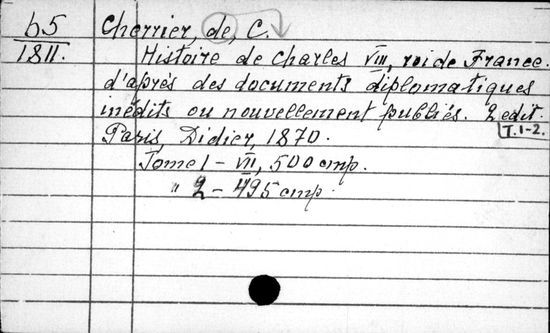 b5
1811.
Cherrier, de, C.
Histoire de Charles VIII, roi de France.
d'aprés des documents diplomatiques
inédits ou nouvellement publiés. 2 edit.
T. 1-2.
Paris, Didier, 1870.
Tome 1 - VII, 500 cmp.
" 2 - 495 cmp.